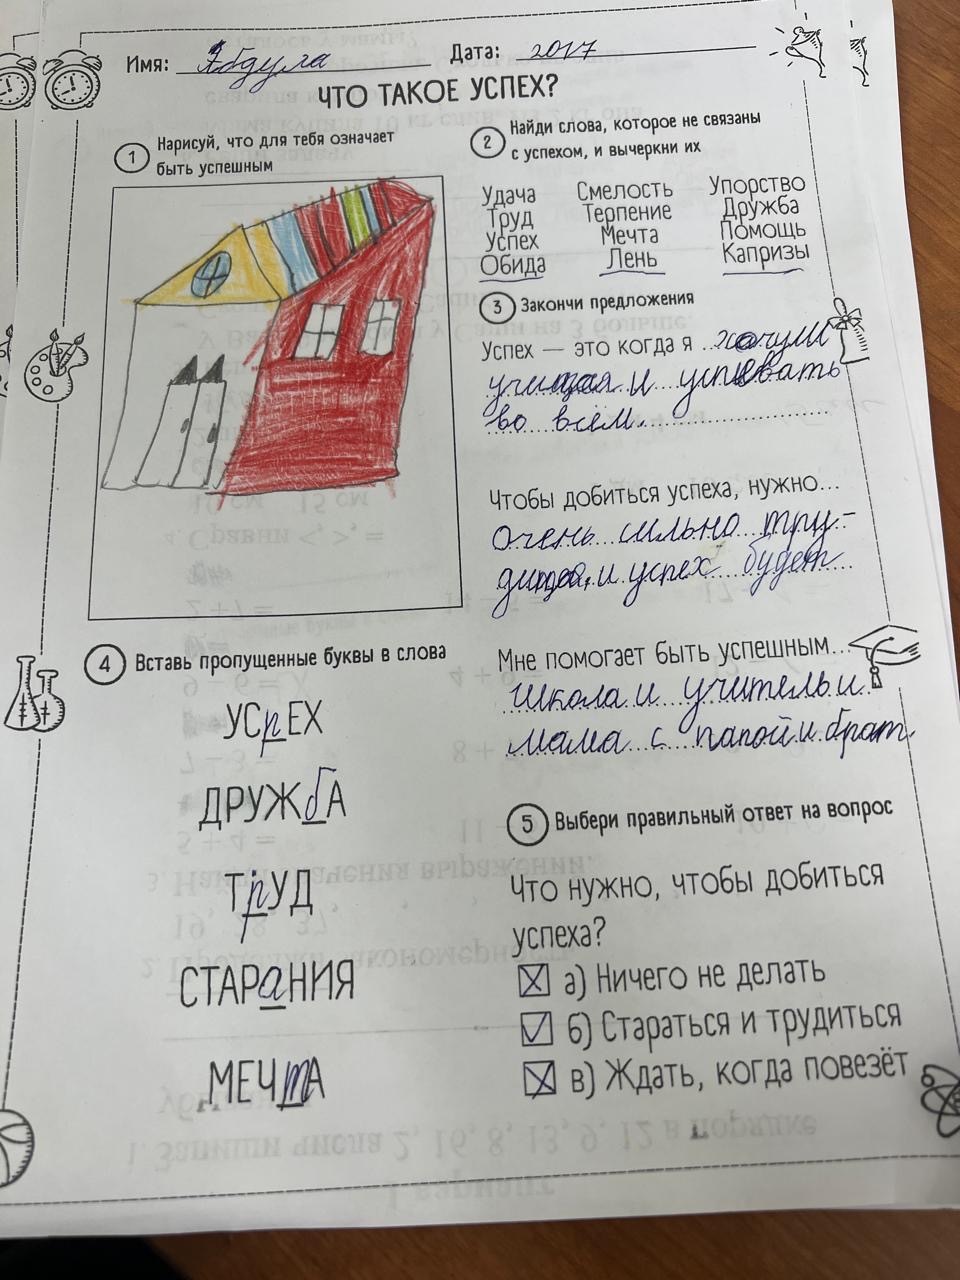 Имя: Абдула Дата: 2017
ЧТО ТАКОЕ УСПЕХ?
1 Нарисуй, что для тебя означает
быть успешным
2 Найди слова, которое не связаны
с успехом, и вычеркни их
Удача Смелость Упорство
Труд Терпение Дружба
Успех Мечта Помощь
Обида Лень Капризы
3 Закончи предложения
Успех — это когда я
и успевать
во всём.
Чтобы добиться успеха, нужно...
очень сильно тру-
и успех будет
Мне помогает быть успешным...
школа и учительи
мама с папой и брат.
4 Вставь пропущенные буквы в слова
УСпЕХ
ДРУЖбА
ТрУД
СТАРаНИЯ
МЕЧтА
5 Выбери правильный ответ на вопрос
Что нужно, чтобы добиться
успеха?
а) Ничего не делать
б) Стараться и трудиться
в) Ждать, когда повезёт